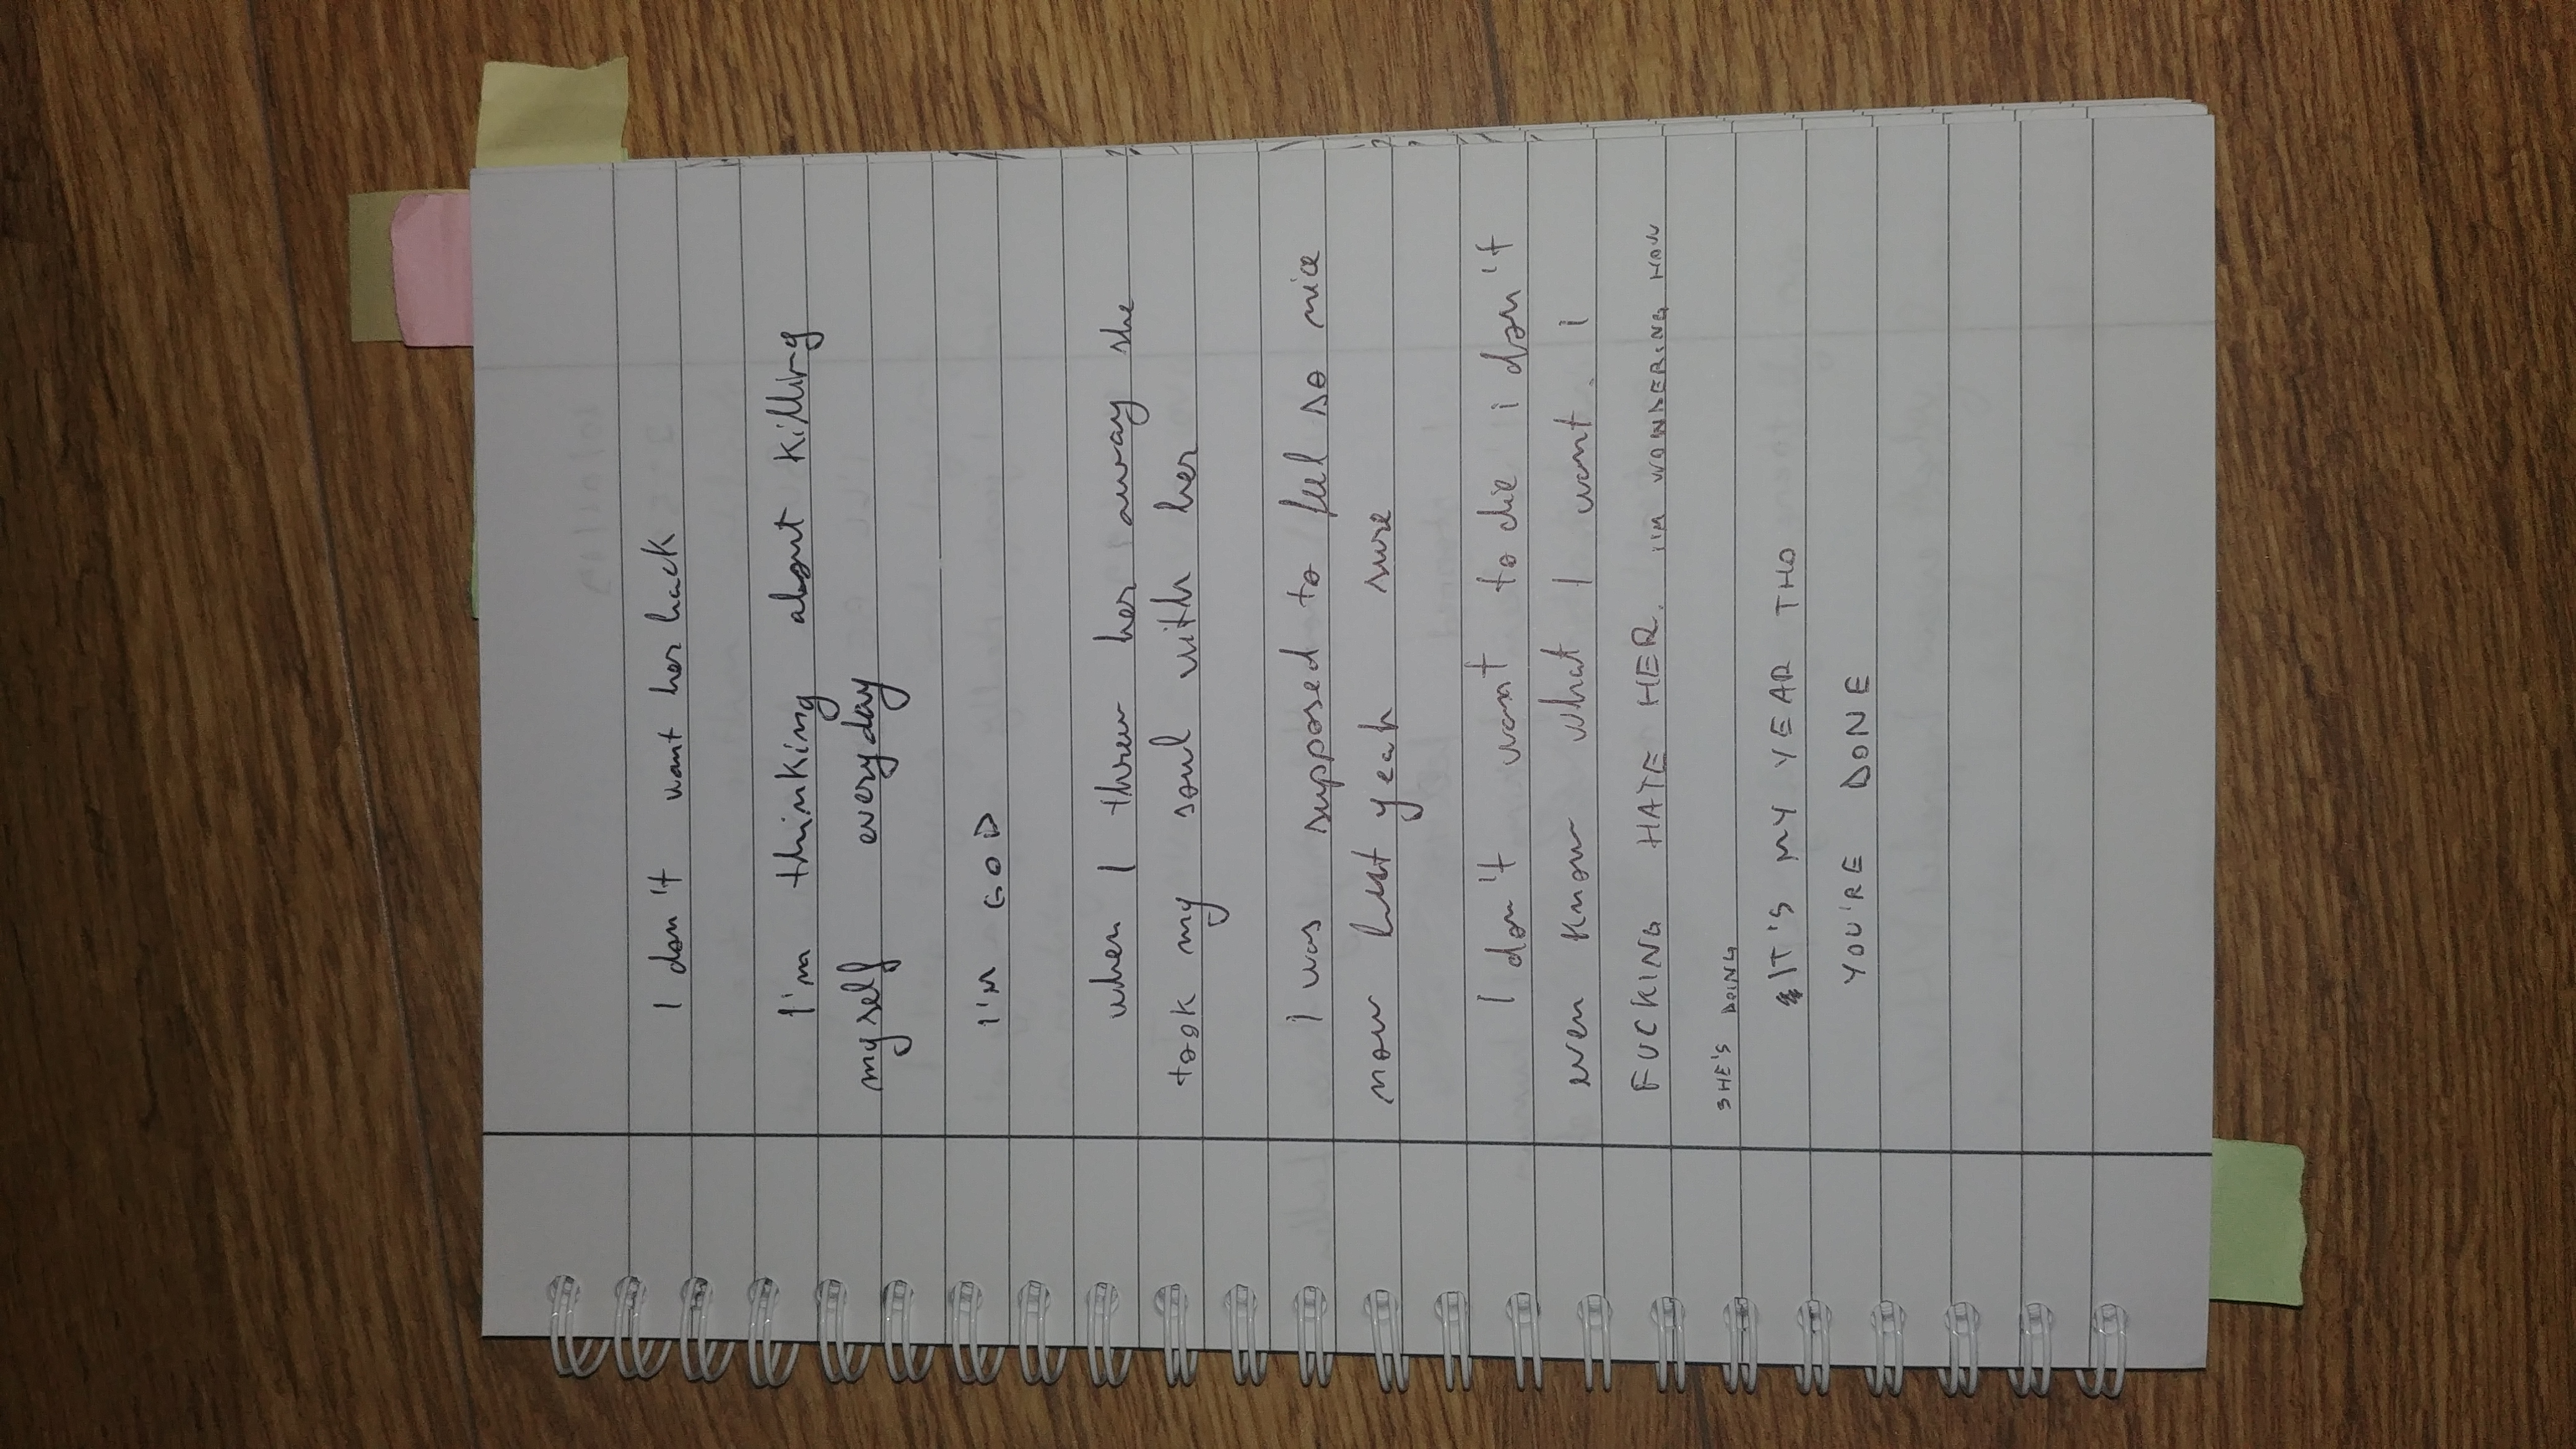 I don't want her back
I'm thinking about killing
myself everyday
I'M GOD
when I threw her away she
took my soul with her
I was supposed to feel so nice
now but yeah sure
I don't want to die i don't
even know what I want. I
FUCKING HATE HER. I'M WONDERING HOW
SHE'S DOING
IT'S MY YEAR THO
YOU'RE DONE